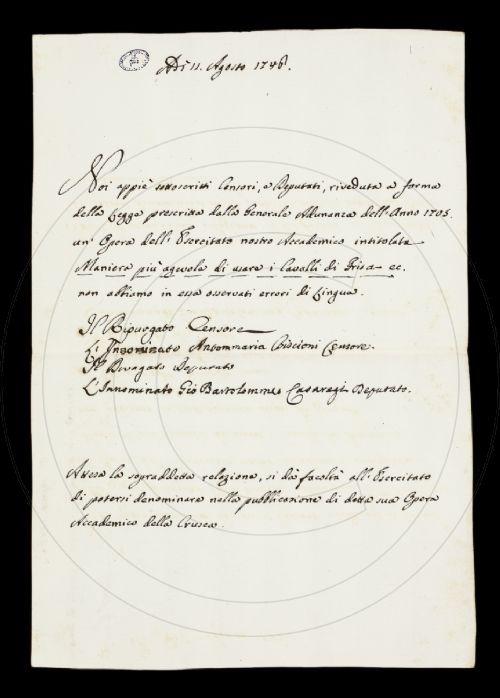 Adì 11. Agosto 1746.
Noi appiè sottoscritti Censori, e Deputati, riveduta a forma
della Legge prescritta dalla Generale Adunanza dell'Anno 1705.
un' Opera dell' Esercitato nostro Accademico intitolata
Maniera più agevole di usare i Cavalli di Frisa ec.
non abbiamo in essa osservati errori di Lingua.
Il Ripurgato Censore
L'Innominato Antommaria Biscioni Censore.
Il Divagato Deputato
L'Innominato Gio Bartolommeo Casaregi Deputato.
Attesa la sopraddetta relazione, si dà facoltà all' Esercitato
di potersi denominare nella pubblicazione di detta sua Opera
Accademico della Crusca.